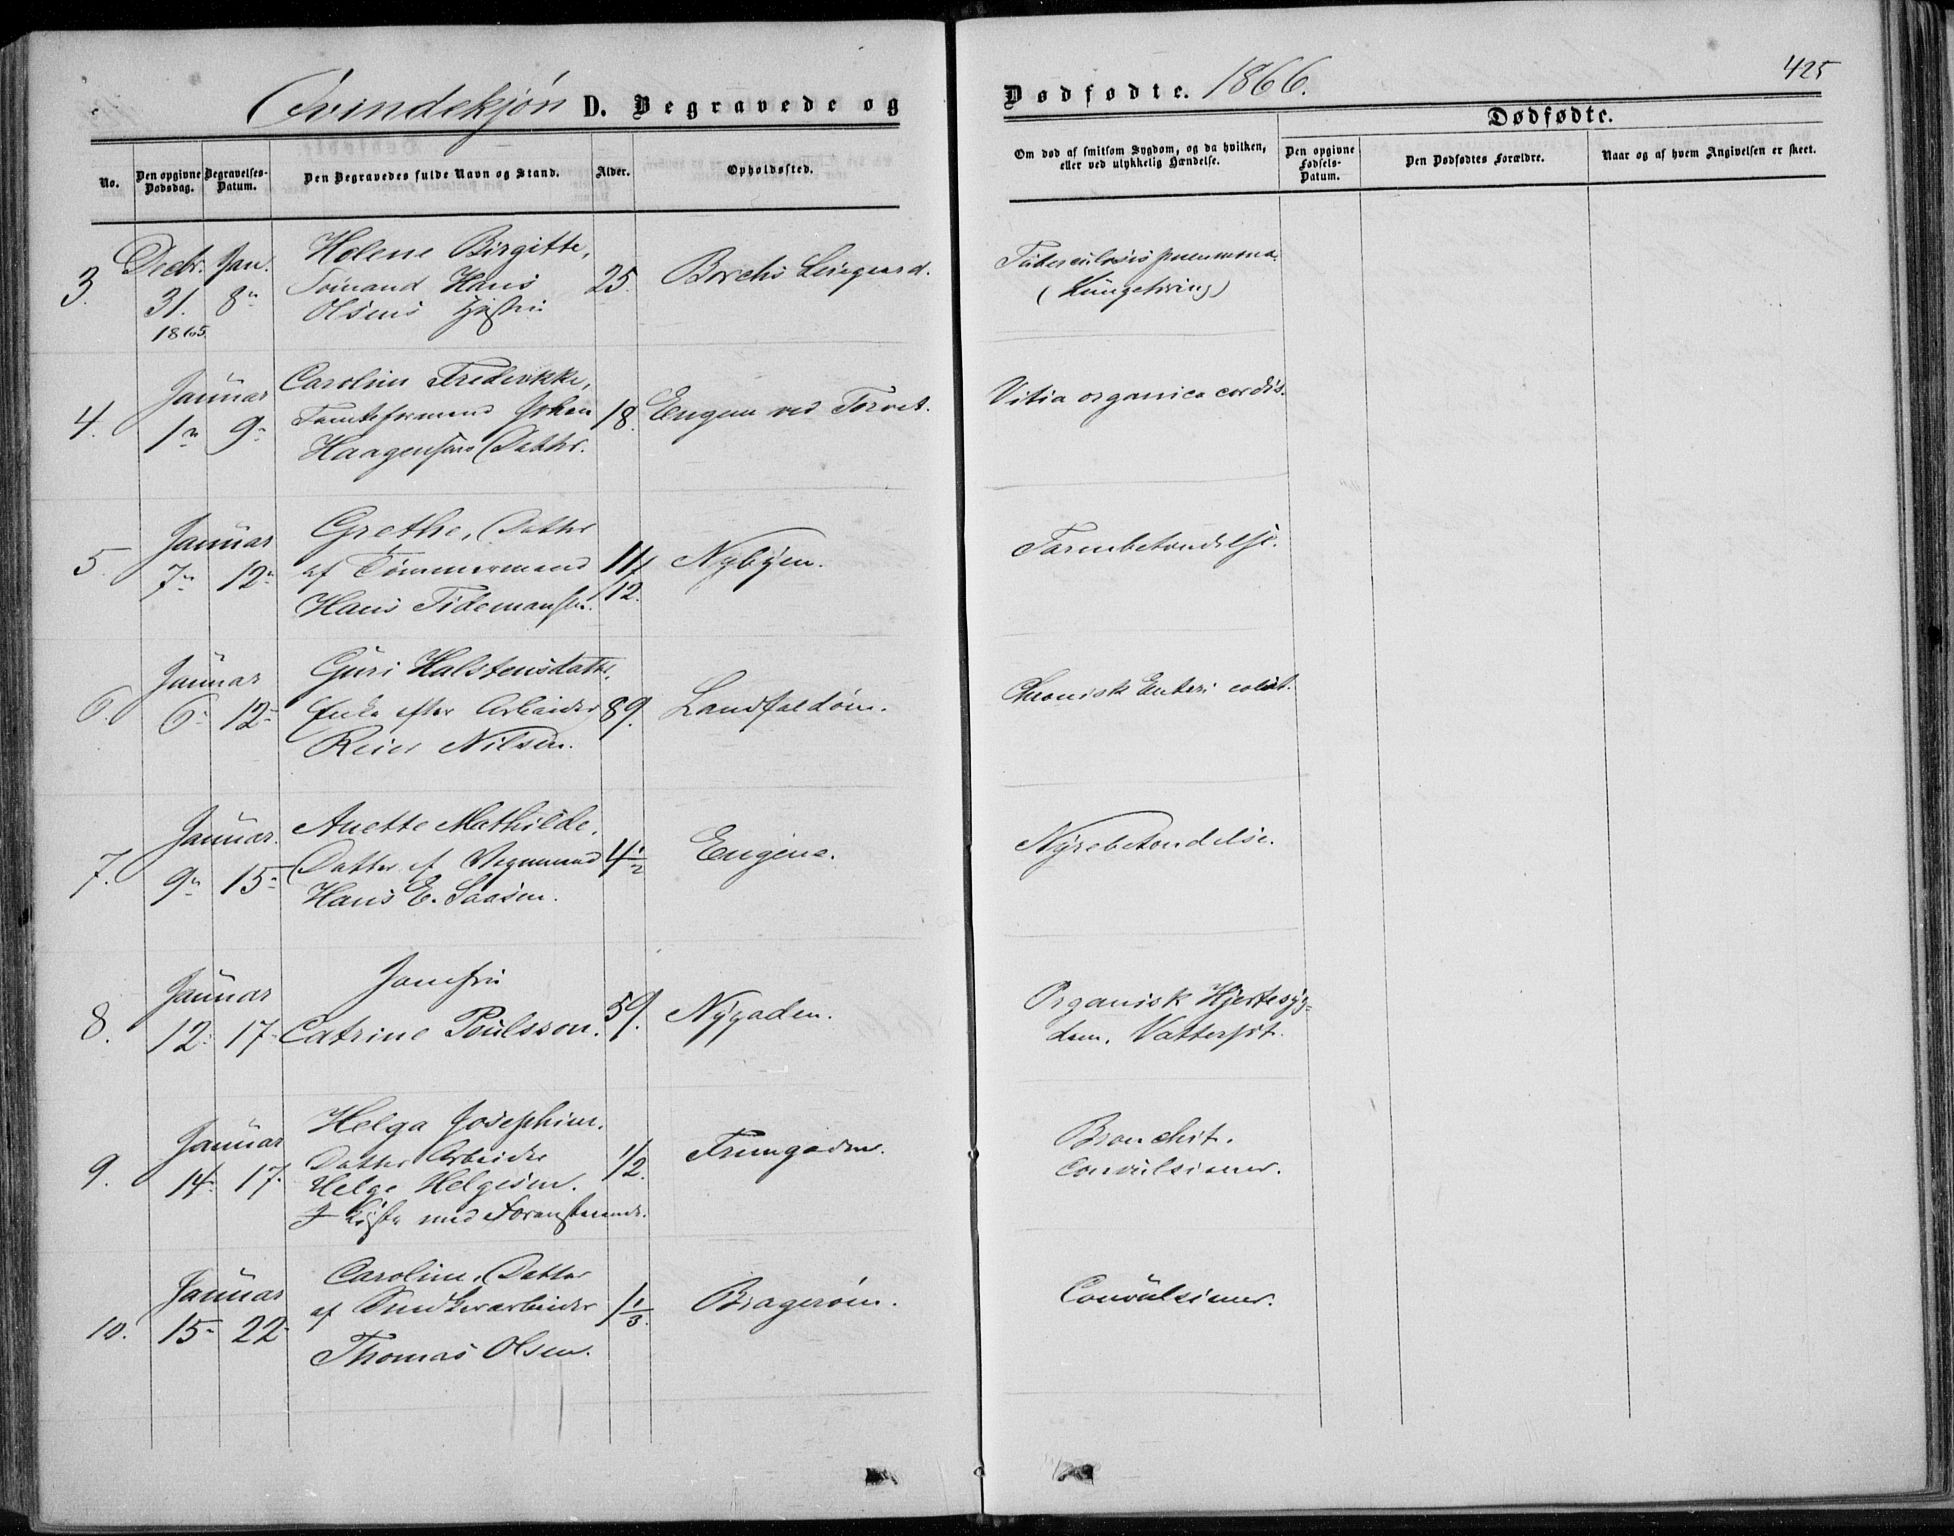 Qvindekjøn D. Begravede og
Dødfødte. 1866.
425
Dødfødte.
No.
Den opgivne Dødsdag.
Begravelses-Datum.
Den Begravedes fulde Navn og Stand.
Alder.
Opholdssted.
Om død af smitsom Sygdom, og da hvilken, eller ved ulykkelig Hændelse.
Den opgivne Fødsels-Datum.
Den Dødfødtes Forældre.
Naar og af hvem Angivelsen er skeet.
3. Decbr. 31. 1865. Jan. 8
Helene Birgitte,
Sømand Hans
Olsens Hustru
25. Borchs Leiegaard.
(Lungetæring)
4. Januar 1 9
Caroline Fredrikke,
Tomteformand Johan
Haagensens Datter.
18. Engene ved Torvet.
Vitia organica cordis.
5. Januar 7 12
Grethe, Datter
af Tømmermand
Hans Tidemansen.
11/12. Nybyen.
Tarmbetændelse.
6. Januar 6 12
Guri Halstensdatter,
Enke efter Arbeider
Reier Nilsen.
89. Landfaldøen.
Chronisk Enteri colit.
7. Januar. 9 15
Anette Mathilde,
Datter af Vognmand
Hans E. Saasen.
4 1/2 Engene.
Nyrebetændelse.
8. Januar 12 17
Jomfru
Catrine Poulsson.
59. Nygaden.
Organisk Hjertesyg-
dom, Vattersot.
9. Januar 14 17.
Helga Josephine,
Datter Arbeider
Helge Helgesen.
I Kiste med Foranstaaende.
1/2. Tromgaden.
Bronchit.
Convulsioner.
10. Januar 15 22
Caroline, Datter
af
Thomas Olsen.
1 1/3. Bragerøen.
Convulsioner.